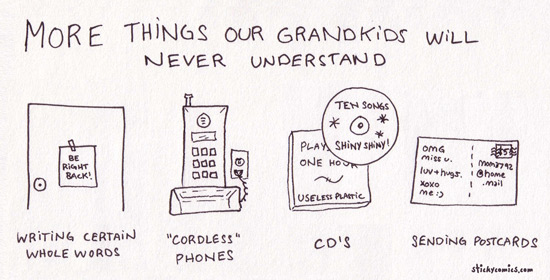 MORE THINGS OUR GRANDKIDS WILL
NEVER UNDERSTAND
BE
RIGHT
BACK!
WRITING CERTAIN
WHOLE WORDS
"CORDLESS"
PHONES
TEN SONGS
SHINY SHINY!
PLAY
ONE HOUR
USELESS PLASTIC
CD'S
OMG
miss u.
luv + hugs.
xoxo
me :)
mom3792
@home
.mail
SENDING POSTCARDS
stickycomics.com